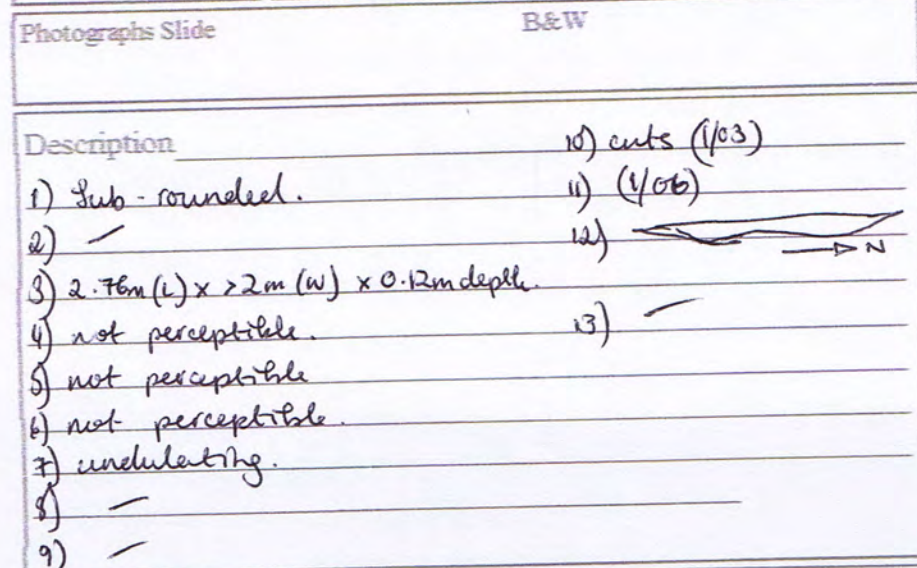 Photographs Slide B&W
Description
1) Sub-rounded.
2) —
3) 2.76m (L) x >2m (W) x 0.12m depth.
4) not perceptible.
5) not perceptible
6) not perceptible.
7) undulating.
8) —
9) —
10) cuts (1/03)
11) (1/06)
12) N
13) —